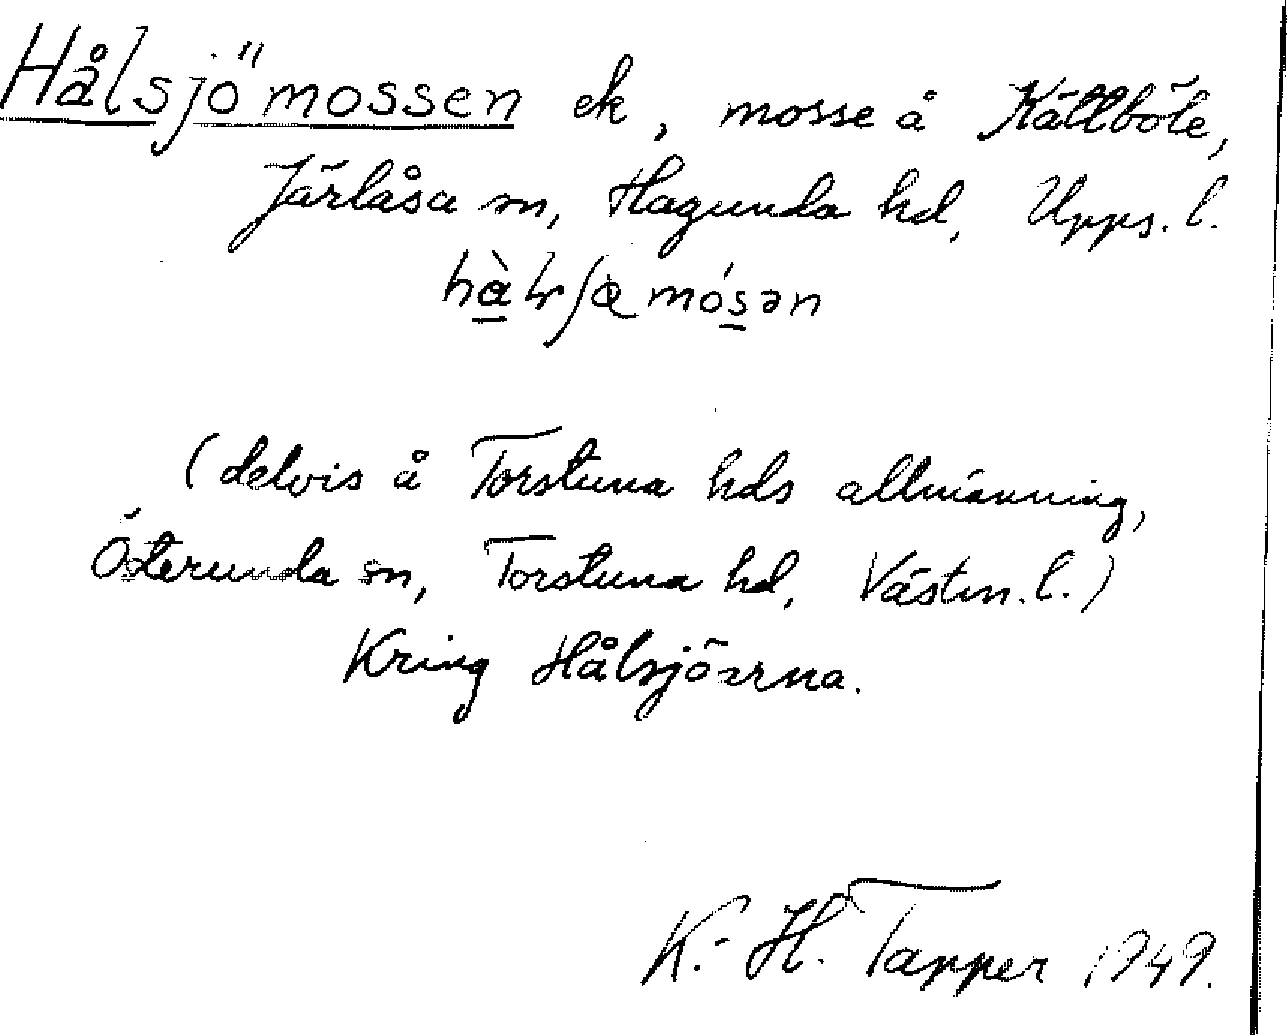 Hålsjömossen ek, mosse å Kättböle,
Järlåsa sn, Hagunda hd, Upps. l.
(delvis å Torstuna hds allmänning,
Österunda sn, Torstuna hd, Västm. l.)
Kring Hålsjöarna.
K.-H. Tapper 1949.